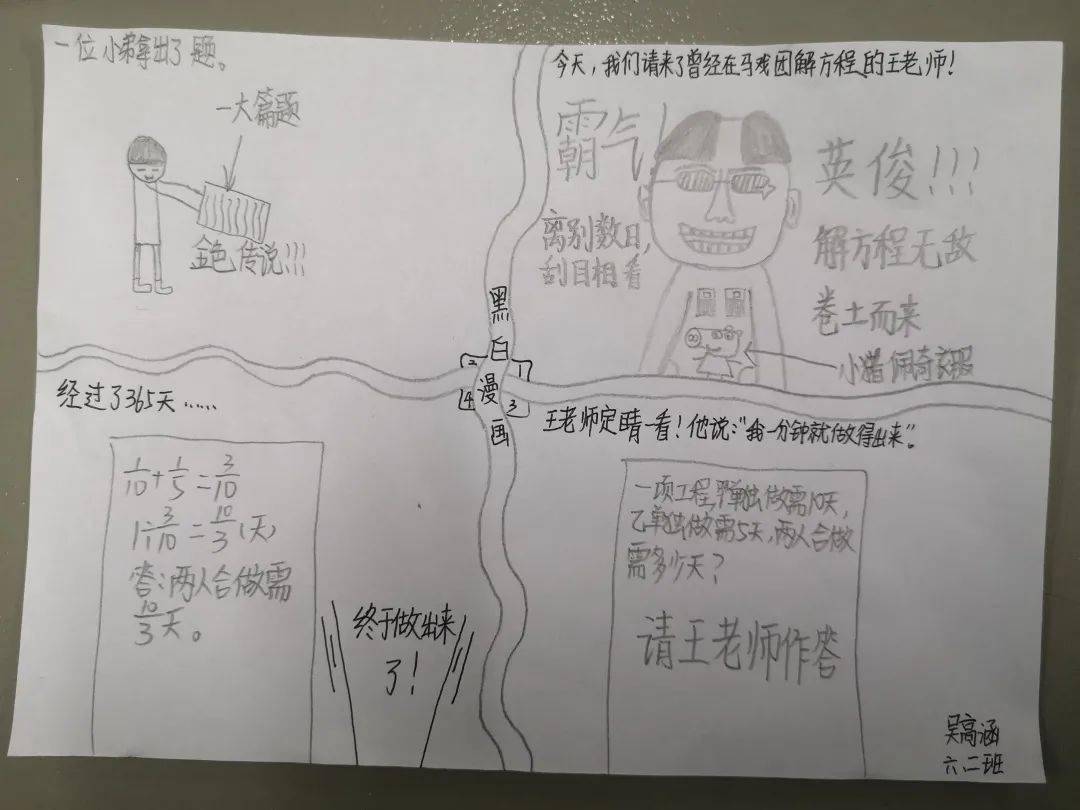 今天，我们请来了曾经在马戏团解方程的王老师！
霸气！
离别数日，
刮目相看
英俊!!!
解方程无敌
卷土而来
小猪佩奇衣服
一位小弟拿出了题。
一大篇题
金色传说!!!
黑
白
漫
画
2
1
4
3
王老师定睛一看！他说："我一分钟就做得出来"。
一项工程，甲单独做需10天，
乙单独做需5天，两人合做
需多少天？
请王老师作答
经过了365天……
1/10+1/5=3/10
1÷3/10=10/3(天)
答：两人合做需
10/3天。
终于做出来
了！
吴高涵
六.二班